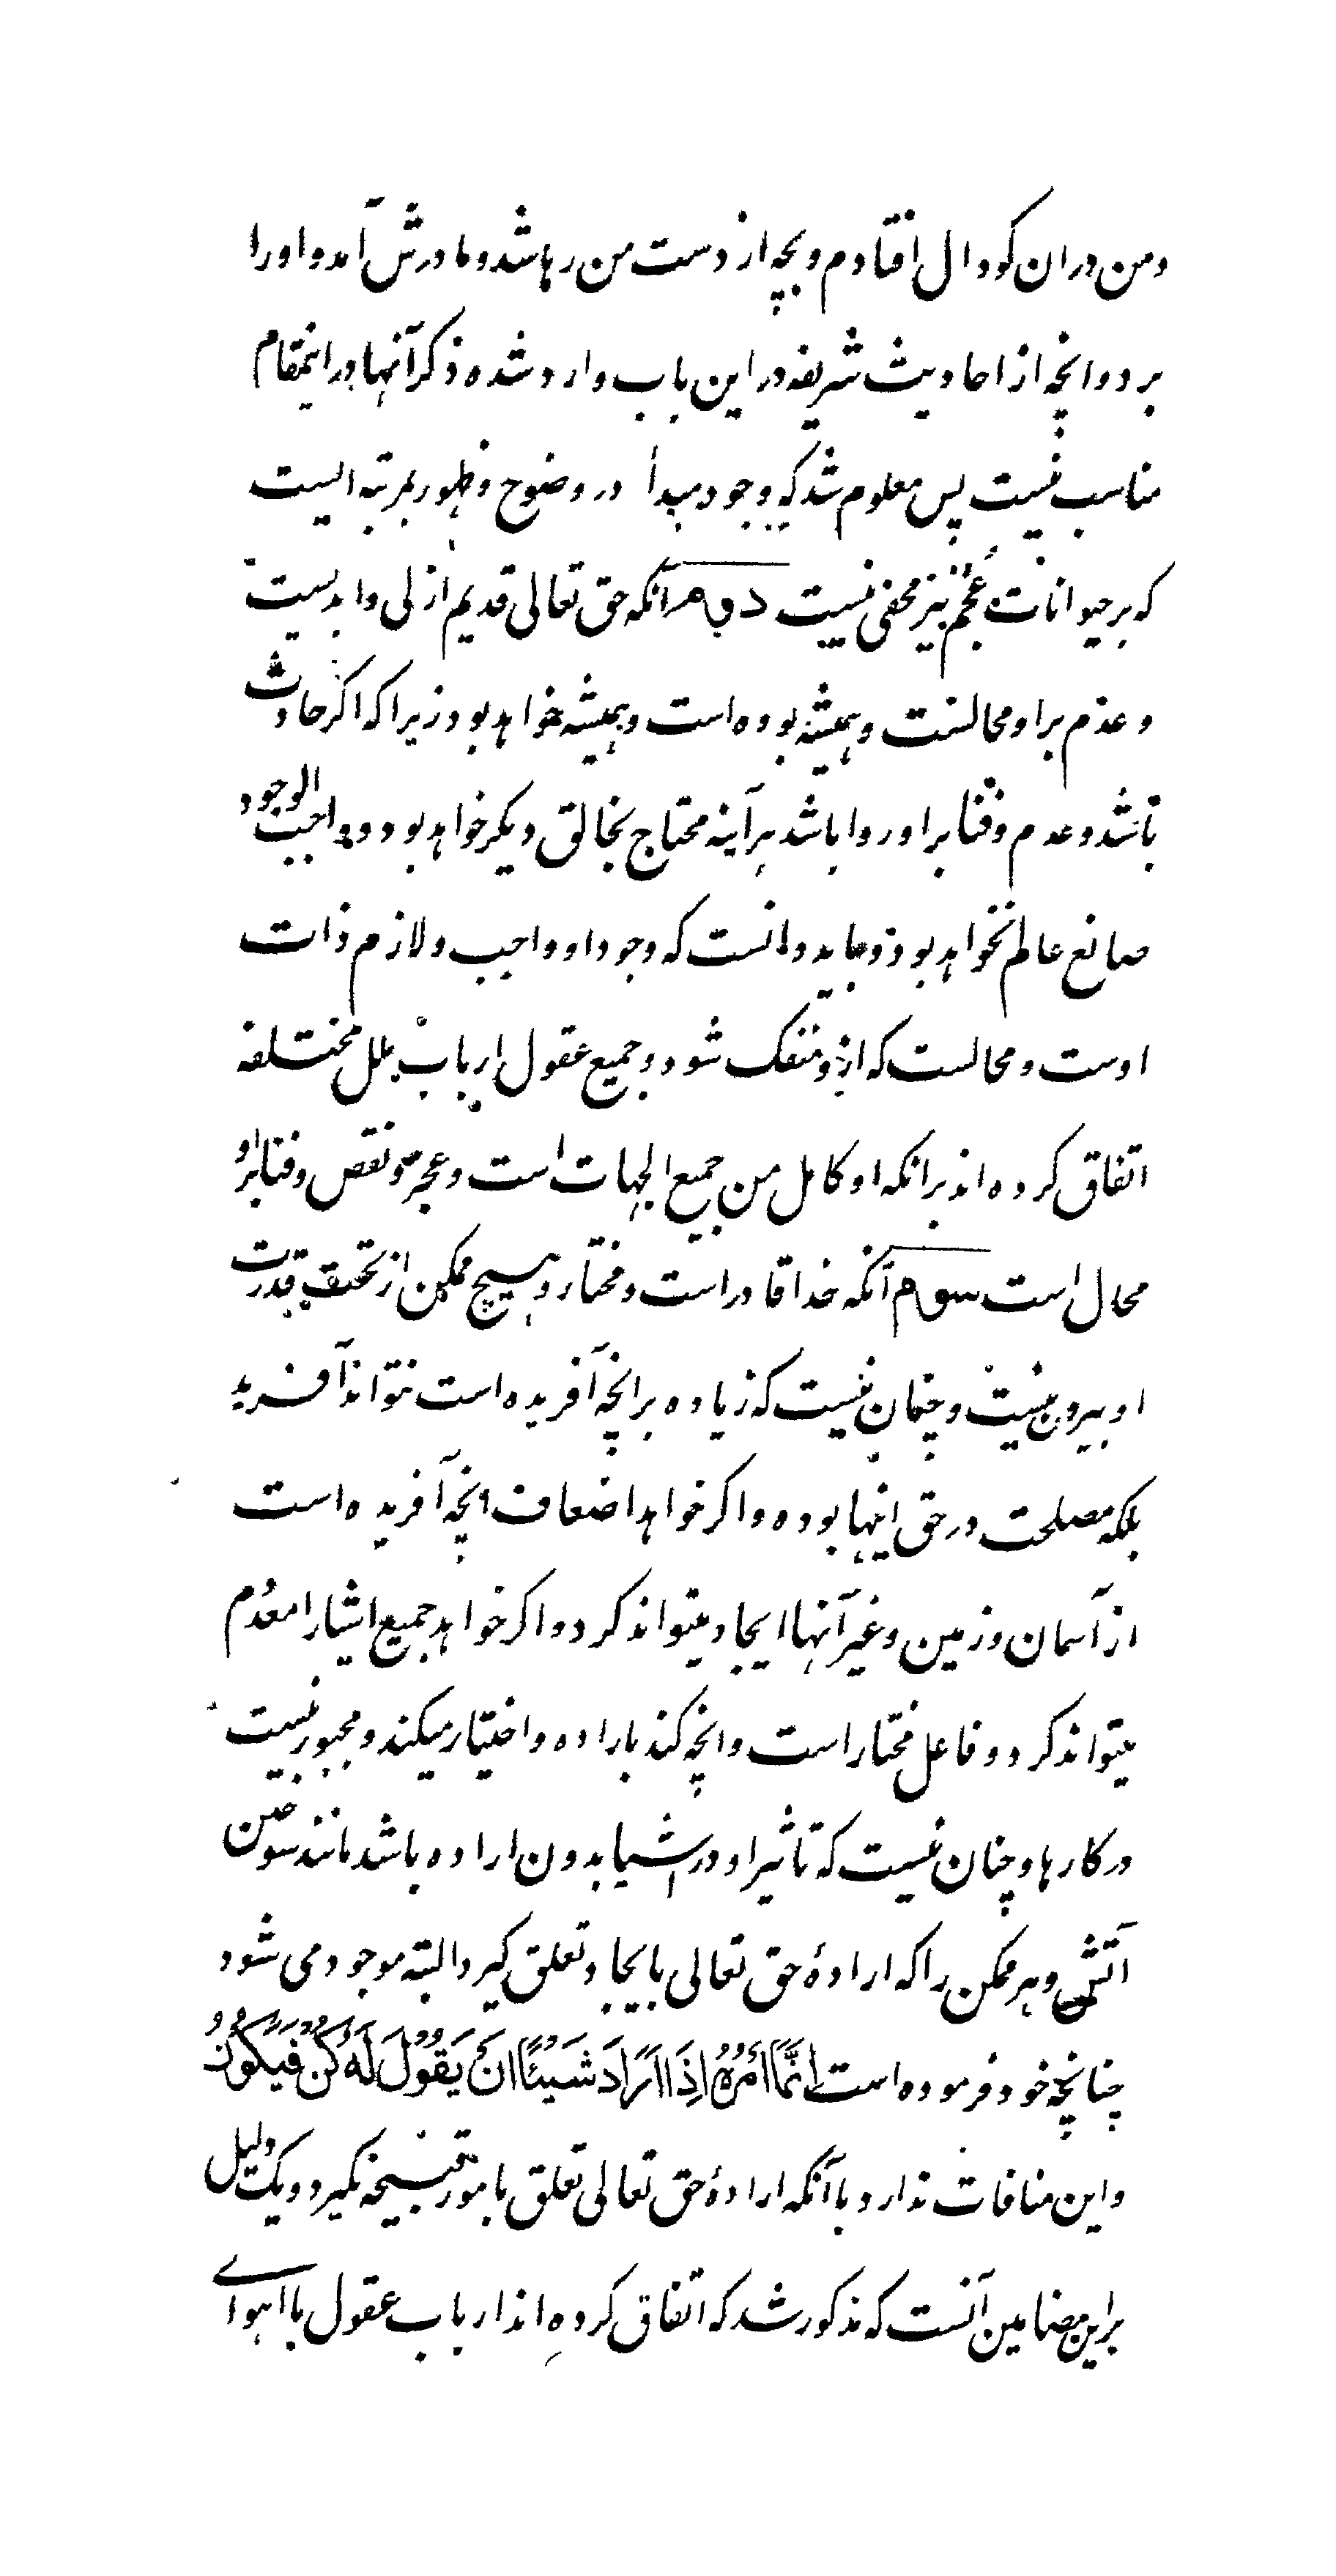 ومن دران کودال افتادم و بچه از دست من رها شد و مادرش آمد و او را
برد و انچه از احادیث شریفه در این باب وارد شده ذکر آنها در اینمقام
مناسب نیست پس معلوم شد که وجود مبدأ در وضوح و ظهور بمرتبه ایست
که بر حیوانات عُجم نیز مخفی نیست دویم آنکه حق تعالی قدیم ازلی و ابدیست
و عدم بر او محالست و همیشه بوده است و همیشه خواهد بود زیرا که اکر حادث
باشد و عدم و فنا بر او روا باشد هر آینه محتاج بخالق دیکر خواهد بود و واجب الوجود
صانع عالم نخواهد بود و بباید دانست که وجود او واجب و لازم ذات
اوست و محالست که از و منفک شود و جمیع عقول ارباب ملل مختلفه
اتفاق کرده اند برانکه او کامل من جمیع الجهات است و عجز و نقص و فنا بر او
محال است سوم آنکه خدا قادر است و مختار و هیچ ممکن از تحت قدرت
او بیرون نیست و چنان نیست که زیاده بر انچه آفریده است نتواند آفرید
بلکه مصلحت در حق اینها بوده و اکر خواهد اضعاف انچه آفریده است
از آسمان و زمین و غیر آنها ایجاد میتواند کرد و اکر خواهد جمیع اشیا را معدُم
میتواند کرد و فاعل مختار است و انچه کند باراده و اختیار میکند و مجبور نیست
در کارها و چنان نیست که تاثیر او در اشیا بدون اراده باشد مانند سوختن
آتش و هر ممکن را که ارادۀ حق تعالی بایجاد تعلق کیرد البته موجود می شود
چنانچه خود فرموده است اِنَّمَا اَمْرُهُ اِذَا اَرَادَ شَیْئًا اَنْ یَقُوْلَ لَهُ کُنْ فَیَکُوْنُ
و این منافات ندارد با آنکه ارادۀ حق تعالی تعلق بامور قبیحه نکیرد و یک دلیل
بر این مضامین آنست که مذکور شد که اتفاق کرده اند ارباب عقول با اهوای